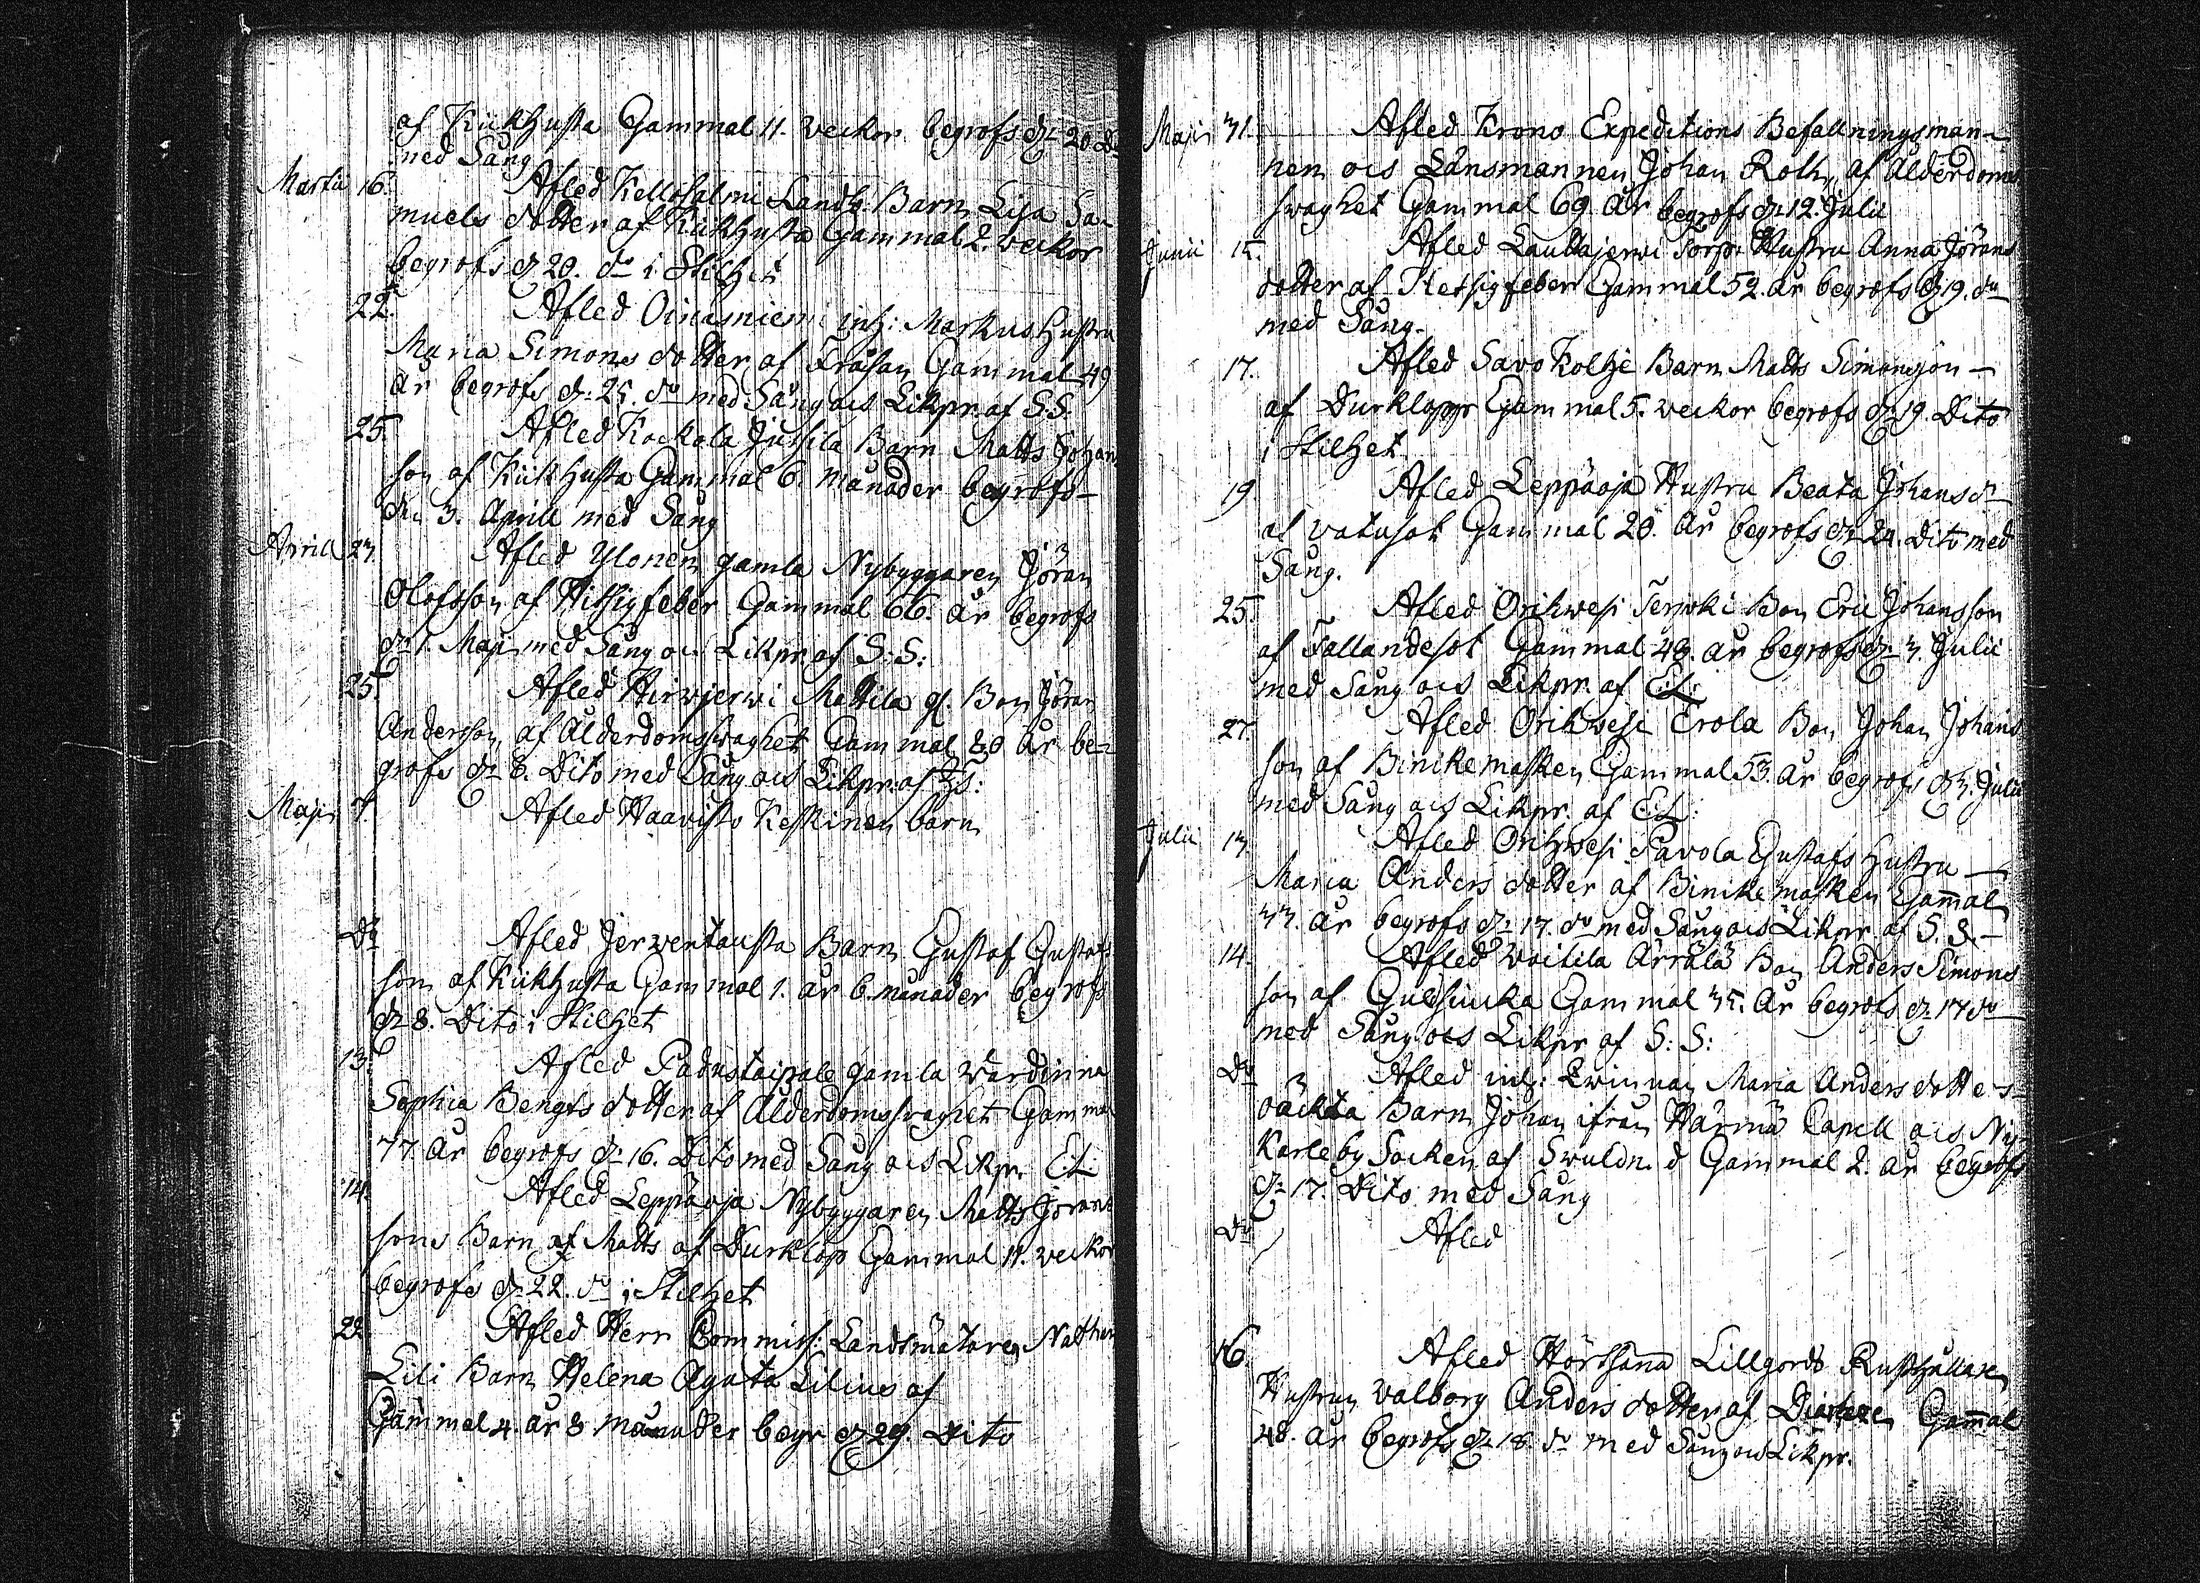 af Kikhosta Gammal 11. veckor begrofs d. 20. Do
med Sång
Martii 16. Afled Kellosalmi Landb. Barn Lisa Sa-
muels dotter af Kikhosta Gammal 2. veckor
begrofs d 20. do i Stilhet
22. Afled Oinasniemi inh: Markus Hustru
Maria Simons dotter af Fråsan Gammal 49
år begrofs d. 25. do med Sång och Likpr. af S.S.
25. Afled Kockola Jussila Barn Matts Johans
son af Kikhosta Gammal 6. månader begrofs
d. 3. Aprill med Sång
Aprill 23. Afled Ylonen gamla Nybyggaren Jöran
Olofsson af Hitsigfeber Gammal 66. år begrofs
d. 1. Maji med Sång och Likpr. af S:S:
25. Afled Hirvijerwi Mattila gl. Bon Jöran
Andersson af Ålderdomsswaghet Gammal 80 år be-
grofs d. 8. Dito med Sång och Likpr. af
Maji 7. Afled Haavisto Keskinen barn
Do Afled Jerventausta Barn Gustaf Gustafs
son af Kikhosta Gammal 1. år 6. månader begrofs
d 8. Dito i Stilhet
13. Afled Padustaipale gamla Wärdinna
Sophia Bengts dotter af Ålderdomsswaghet Gammal
77. år begrofs d. 16. Dito med Sång och Likpr. E:L
14. Afled Leppäoja Nybyggaren Matts Jörans
sons Barn af Matts af Durklop Gammal 11. veckor
begrofs d. 22. do i Stilhet
22 Afled Herr Commiss: Landtmätaren Nathan
Lili Barn Helena Agata Lilius af
Gammal 4. år 8 månader begr d 29. Dito
Maji 31. Afled Krono Expeditions Befallningsman-
nen och Länsmannen Johan Roth, af Ålderdoms
swaghet Gammal 69. År begrofs d. 12. Julii
Junii 15. Afled Lautajerwi Torp. Hustru Anna Jörans
dotter af Hetsigfeber Gammal 52. år begrofs d 19. do
med Sång.
17. Afled Savo Koltje Barn Matts Simonsson
af Durklopp Gammal 5. veckor begrofs d. 19. Dito
i Stilhet
19 Afled Leppäoja Hustru Beata Johans dr
af vatusot Gammal 20. år begrofs d. 24. Dito med
Sång.
25. Afled Orihwesi Terwoki Bon Eric Johansson
af Fallandesot Gammal 49. år begrofs d. 3. Julii
med Sång och Likpr. af E:L:
27. Afled Orihwesi Erola Bon Johan Johans
son af Binikemasken Gammal 53. år begrofs d 3. Julii
med Sång och Likpr. af E:L:
Julii 13. Afled Orihwesi Pavola Gustafs Hustru
Maria Anders dotter af Binikemasken Gammal
33. år begrofs d. 17. do med Sång och Likpr af S. S.
14. Afled Woitila Ärrälä Bon Anders Simons
son af Gulsiucka Gammal 35. År begrofs d. 17 do
med Sång och Likpr af S: S:
Do Afled inh: Qwinnan Maria Anders dotters
oäckta Barn Johan ifrån Härmä Capell och Ny-
Karleby Socken af Swuldn. d Gammal 2. år begrofs
d. 17. Dito med Sång
Do Afled
16. Afled Hörtsana Lillgords Rusthållaren
Hustrun Valborg Anders dotter af Gammal
48. år begrofs d. 18. do med Sång och Likpr.